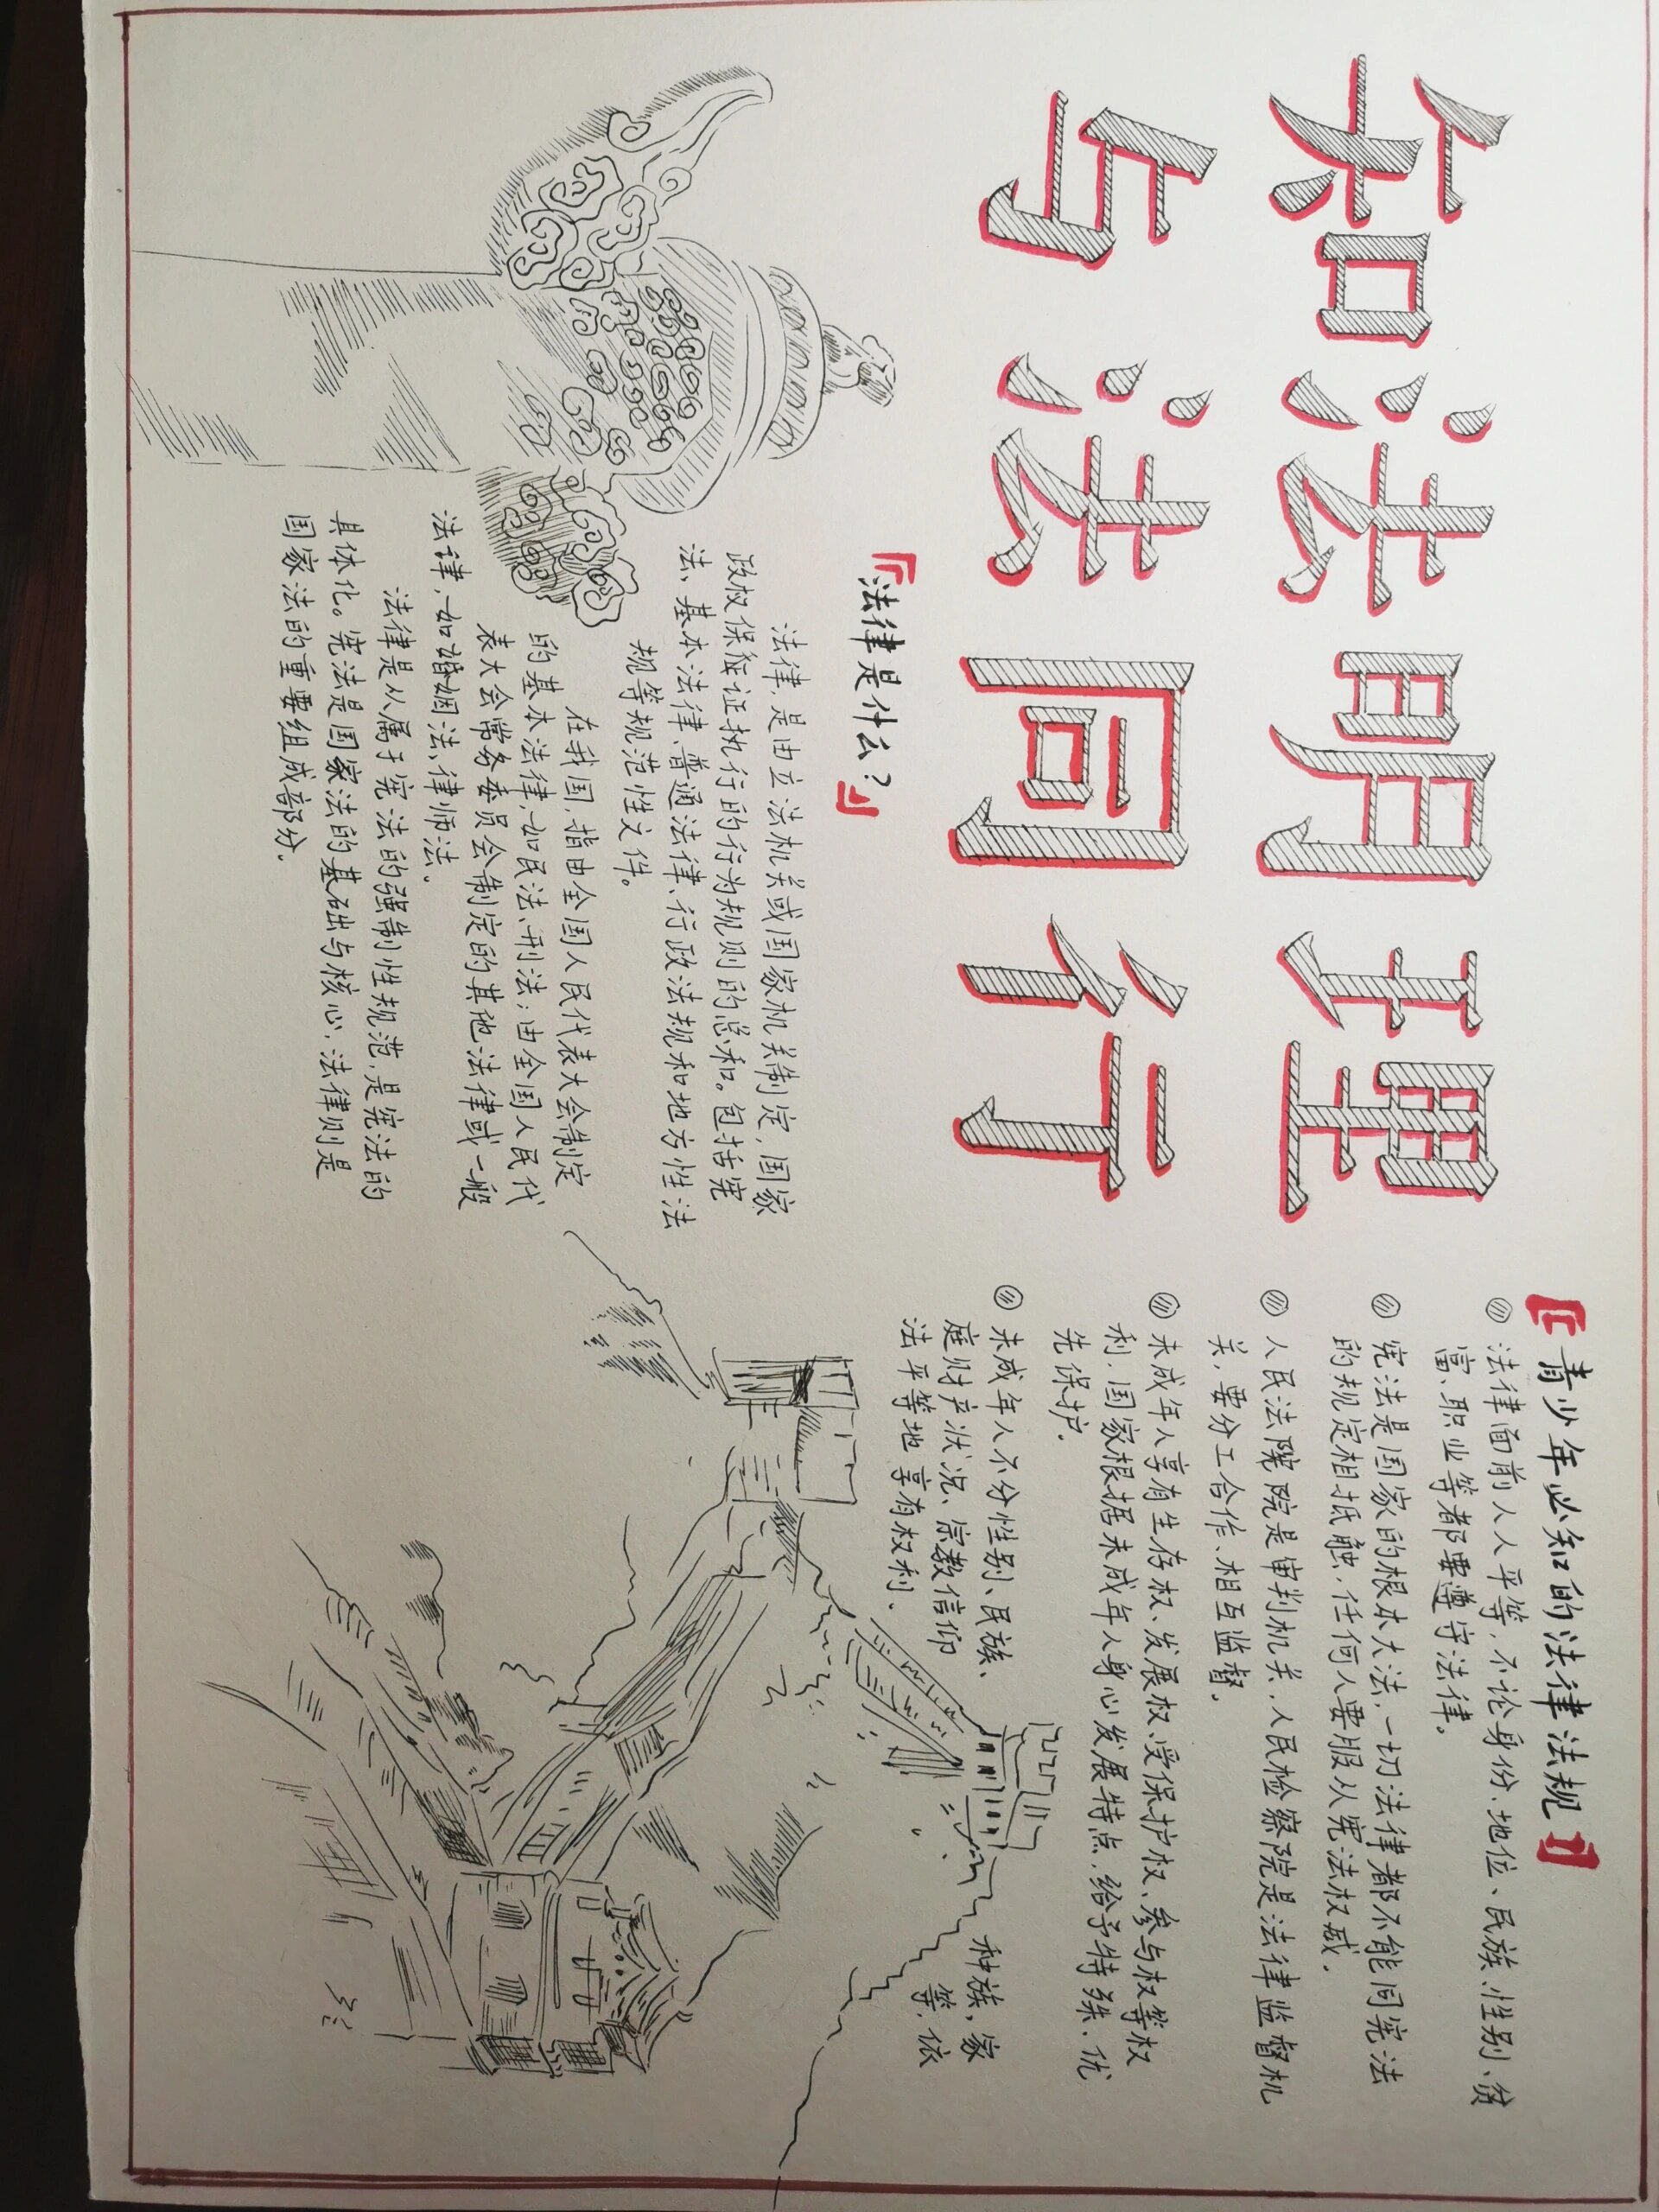 知法明理
与法同行
『法律是什么?』
法律,是由立法机关或国家机关制定,国家
政权保征证执行的行为规则的总和。包括宪
法、基本法律、普通法律、行政法规和地方性法
规等规范性文件。
在我国,指由全国人民代表大会制定
的基本法律,如民法、刑法;由全国人民代
表大会常务委员会制定的其他法律或一般
法律,如婚姻法、律师法.
法律是从属于宪法的强制性规范,是宪法的
具体化。宪法是国家法的基础与核心,法律则是
国家法的重要组成部分.
『青少年必知的法律法规』
法律面前人人平等,不论身份、地位、民族、性别、贫
富、职业等者都要遵守法律.
宪法是国家的根本大法,一切法律都不能同宪法
的规定相抵触,任何人要服从宪法权威.
人民法院院是审判机关,人民检察院是法律监督机
关,要分工合作、相互监督.
未成年人享有生存权、发展权、受保护权、参与权等权
利,国家根据未成年人身心发展特点,给予特殊、优
先保护.
未成年人不分性别、民族、种族,家
庭财产状况、宗教信仰等,依
法平等地享有权利.